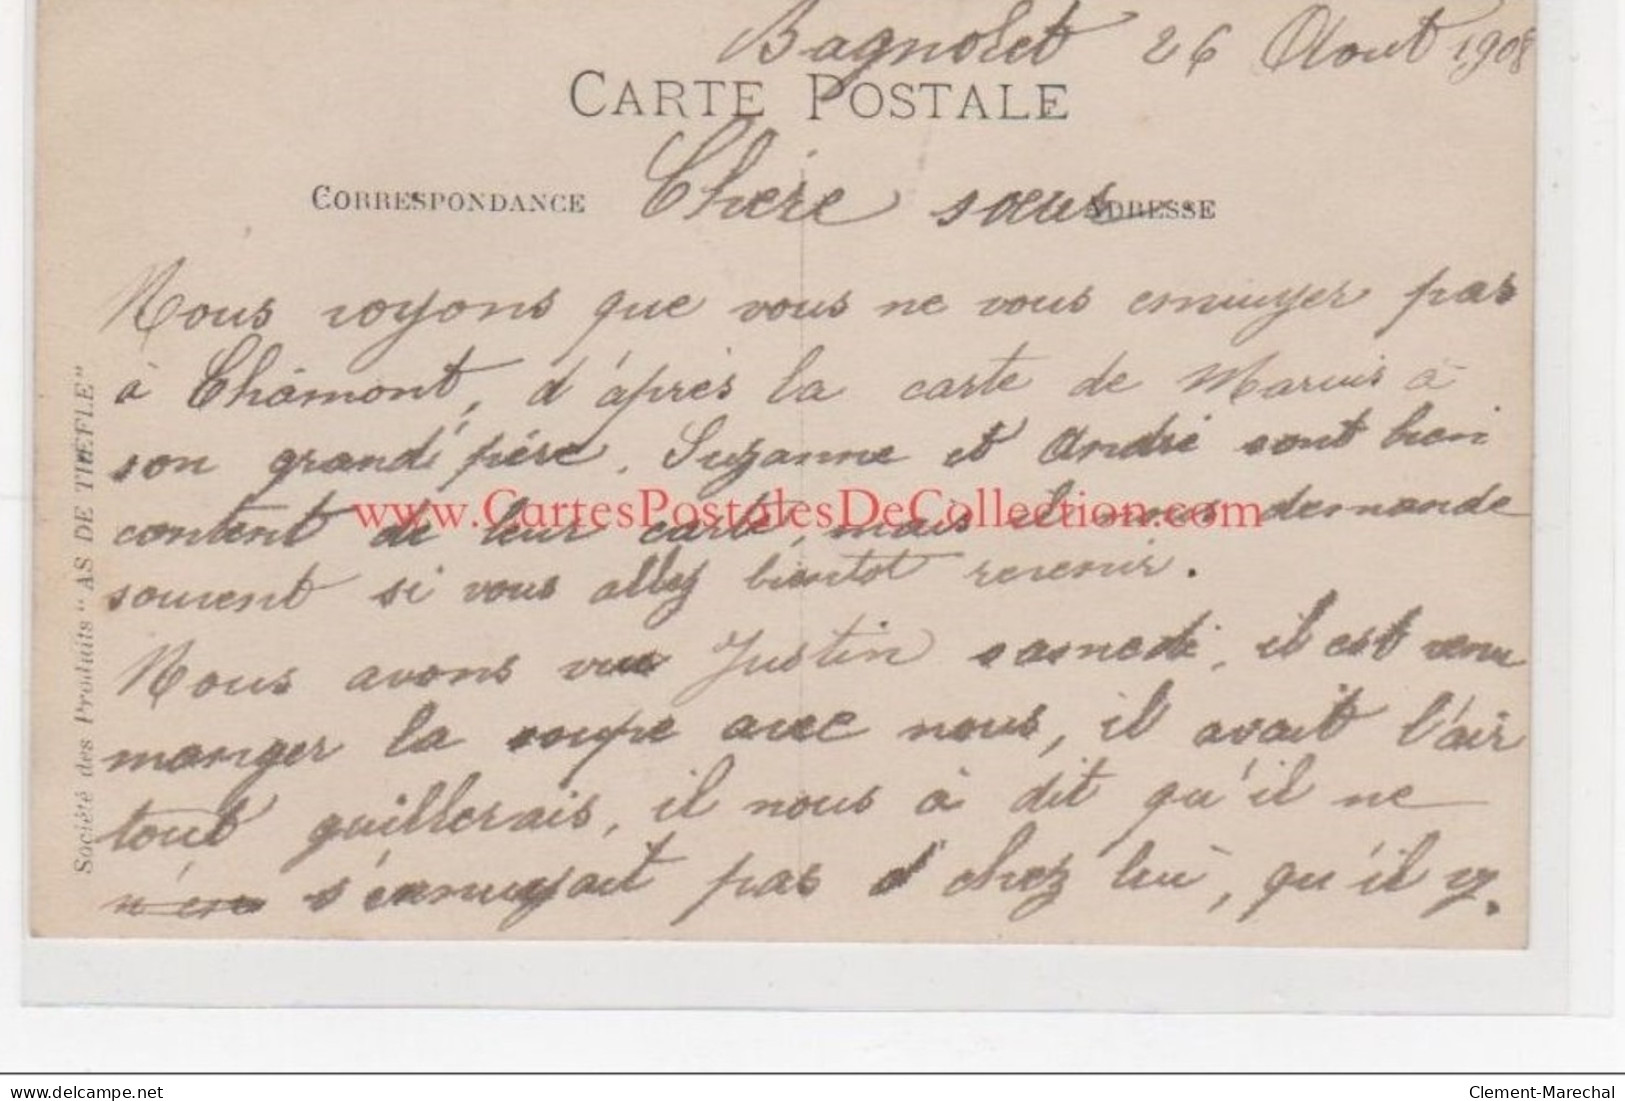 Bagnolet 26 Aout 1908
CARTE POSTALE
CORRESPONDANCE
ADRESSE
Chère sœur
Nous voyons que vous ne vous ennuyer pas
à Châmont, d'après la carte de Marius à
son grand'père. Suzanne et André sont bien
content de leur carte, mais il nous demande
souvent si vous allez bientot revenir.
Nous avons vue Justin samedi, il est venu
manger la soupe avec nous, il avait l'air
tout guillerais, il nous à dit qu'il ne
n'en s'ennuyait pas chez lui, qu'il y.
Société des Produits "AS DE TREFLE"
www.CartesPostalesDeCollection.com
delcampe.net
Clement-Marechal